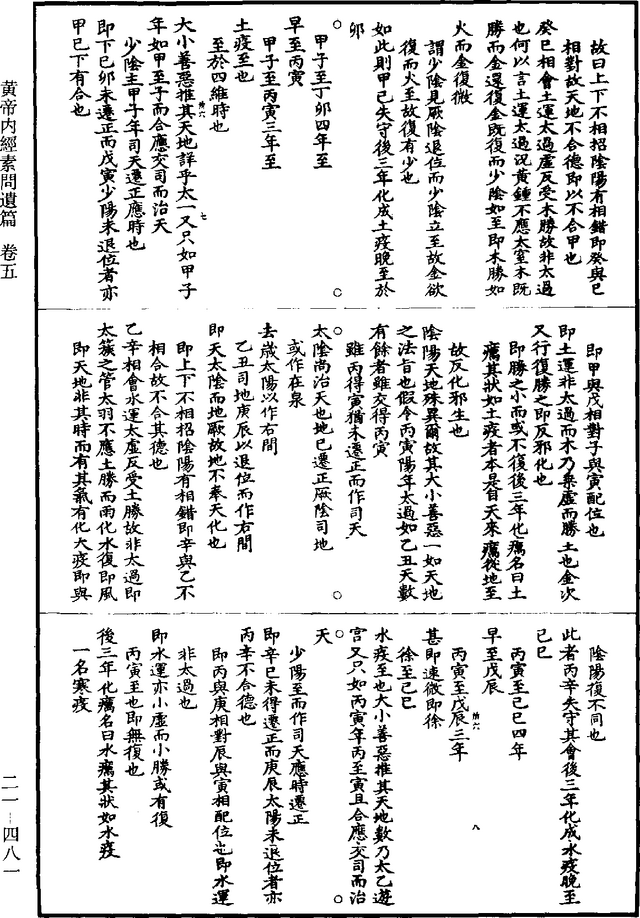 故曰上下不相招陰陽有相錯即癸與巳
相對故天地不合德即以不合甲也
癸巳相會土運太過虛反受木勝故非太過
也何以言土運太過況黃鍾不應太室木既
勝而金還復金既復而少陰如至即木勝如
火而金復微
謂少陰見厥陰退位而少陰立至故金欲
復而火至故復有少也
如此則甲己失守後三年化成土疫晚至於
卯
甲子至丁卯四年至
早至丙寅
甲子至丙寅三年至
土疫至也
至於四維時也
大小善惡推其天地詳乎太一又只如甲子
年如甲至子而合應交司而治天
少陰主甲子年司天遷正應時也
即下己卯未遷正而戊寅少陽未退位者亦
甲巳下有合也
即甲與戊相對子與寅配位也
即土運非太過而木乃乘虛而勝土也金次
又行復勝之即反邪化也
即勝之小而或不復後三年化癘名曰土
癘其狀如土疫者本是自天來癘從地至
故反化邪生也
陰陽天地殊異爾故其大小善惡一如天地
之法旨也假令丙寅陽年太過如乙丑天數
有餘者雖交得丙寅
雖丙得寅猶未遷正而作司天
太陰尚治天也地已遷正厥陰司地
或作在泉
去歲太陽以作右間
乙丑司地庚辰以退位而作右間
即天太陰而地厥故地不奉天化也
即上下不相招陰陽有相錯即辛與乙不
相合故不合其德也
乙辛相會水運太虛反受土勝故非太過即
太簇之管太羽不應土勝而雨化水復即風
即天地非其時而有其氣有化大疫即與
陰陽復不同也
此者丙辛失守其會後三年化成水疫晚至
己巳
丙寅至己巳四年
早至戊辰
丙寅至戊辰三年
甚即速微即徐
徐至己巳
水疫至也大小善惡推其天地數乃太乙遊
宮又只如丙寅年丙至寅且合應交司而治
天
少陽至而作司天應時遷正
即辛巳未得遷正而庚辰太陽未退位者亦
丙辛不合德也
即丙與庚相對辰與寅相配位也即水運
非太過也
即水運亦小虛而小勝或有復
丙寅至也即無復也
後三年化癘名曰水癘其狀如水疫
一名寒疫
黃帝內經素問遺篇 卷五
二一—四八一